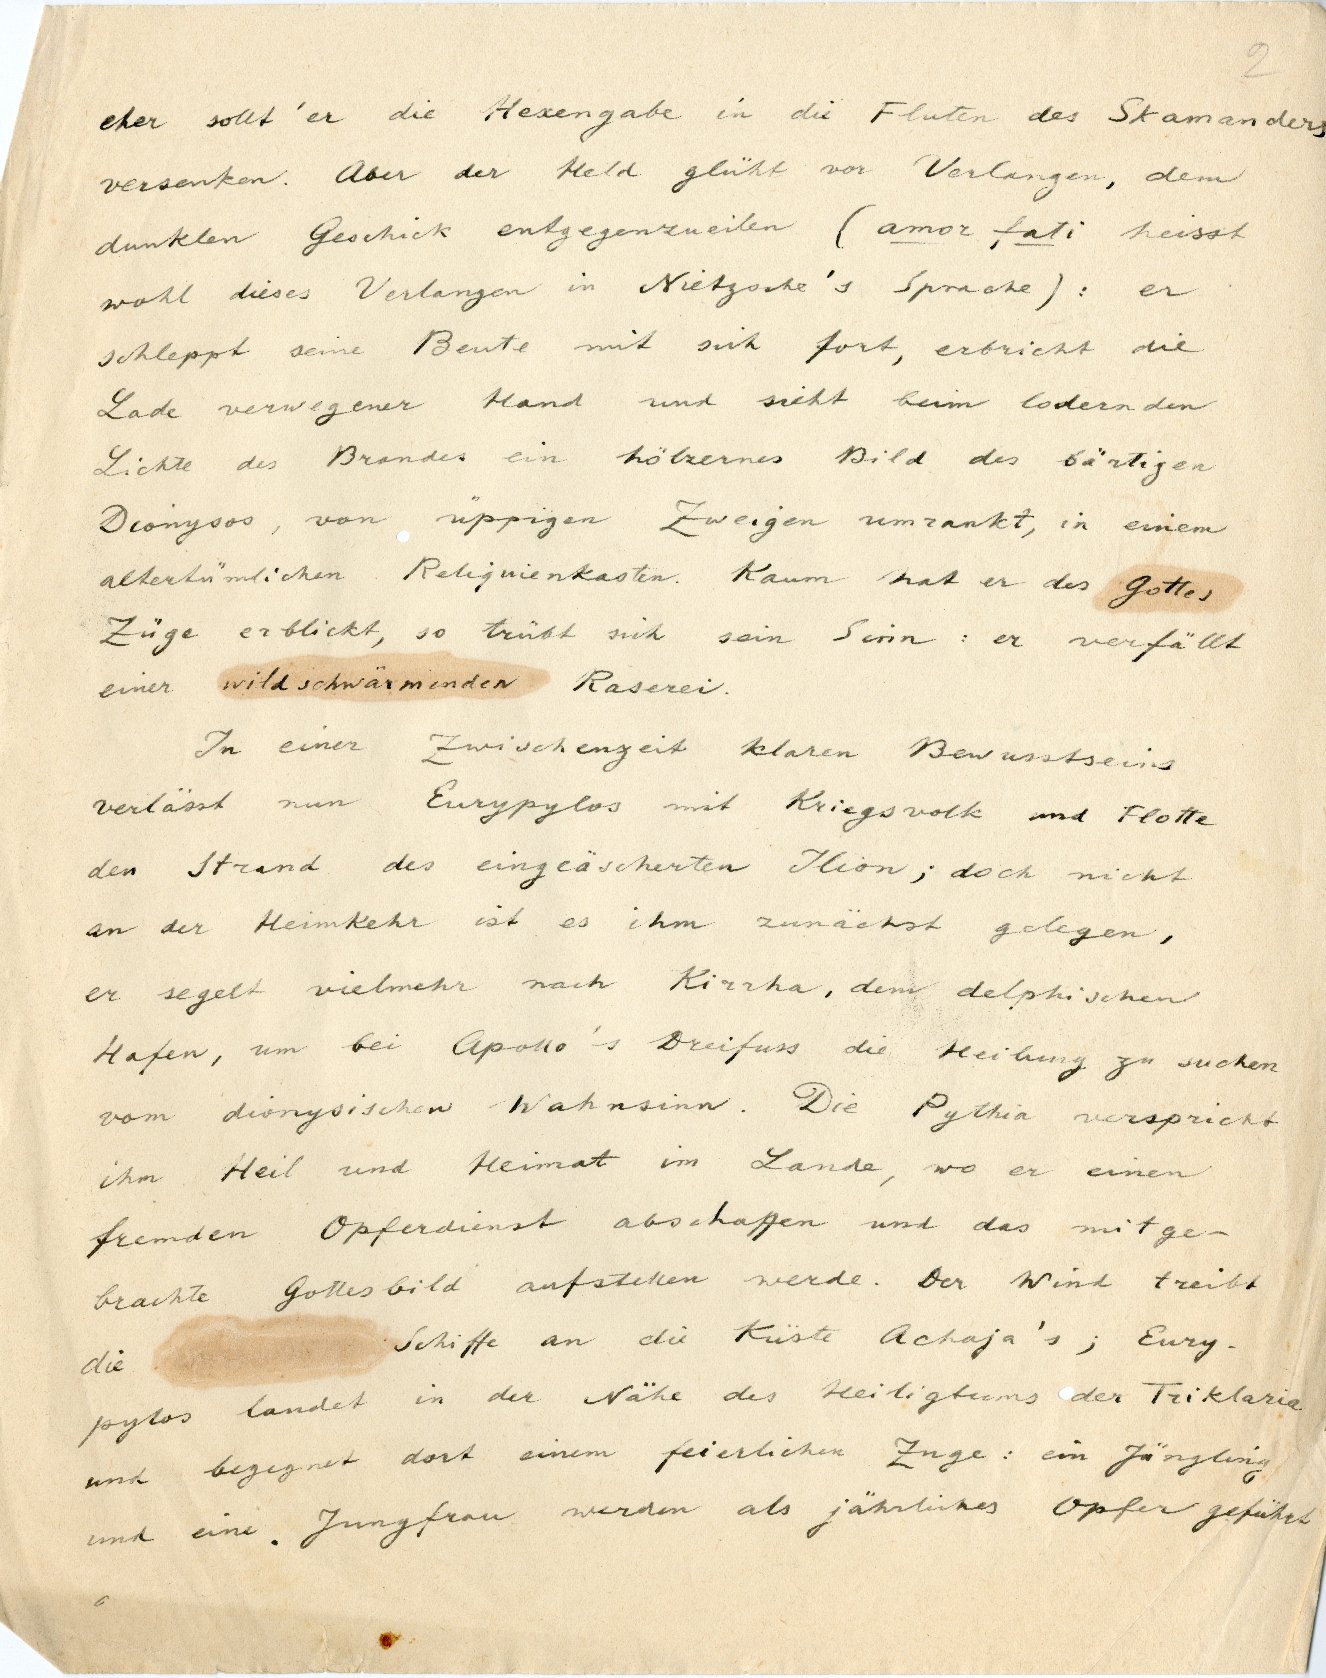 2
eher sollt' er die Hexengabe in die Fluten des Skamanders
versenken. Aber der Held glüht vor Verlangen, dem
dunklen Geschick entgegenzueilen (amor fati heisst
wohl dieses Verlangen in Nietzsche's Sprache): er
schleppt seine Beute mit sich fort, erbricht die
Lade verwegener Hand und sieht beim lodernden
Lichte des Brandes ein hölzernes Bild des bärtigen
Dionysos, von üppigen Zweigen umrankt, in einem
altertümlichen Reliquienkasten. Kaum hat er des Gottes
Züge erblickt, so trübt sich sein Sinn: er verfällt
einer wildschwärmenden Raserei.
In einer Zwischenzeit klaren Bewusstseins
verlässt nun Eurypylos mit Kriegsvolk und Flotte
den Strand des eingeäscherten Ilion; doch nicht
an der Heimkehr ist es ihm zunächst gelegen,
er segelt vielmehr nach Kirrha, dem delphischen
Hafen, um bei Apollo's Dreifuss die Heilung zu suchen
vom dionysischen Wahnsinn. Die Pythia verspricht
ihm Heil und Heimat im Lande, wo er einen
fremden Opferdienst abschaffen und das mitge-
brachte Gottesbild aufstellen werde. Der Wind treibt
die Schiffe an die Küste Achaja's; Eury-
pylos landet in der Nähe des Heiligtums der Triklaria
und begegnet dort einem feierlichen Zuge: ein Jüngling
und eine Jungfrau werden als jährliches Opfer geführt